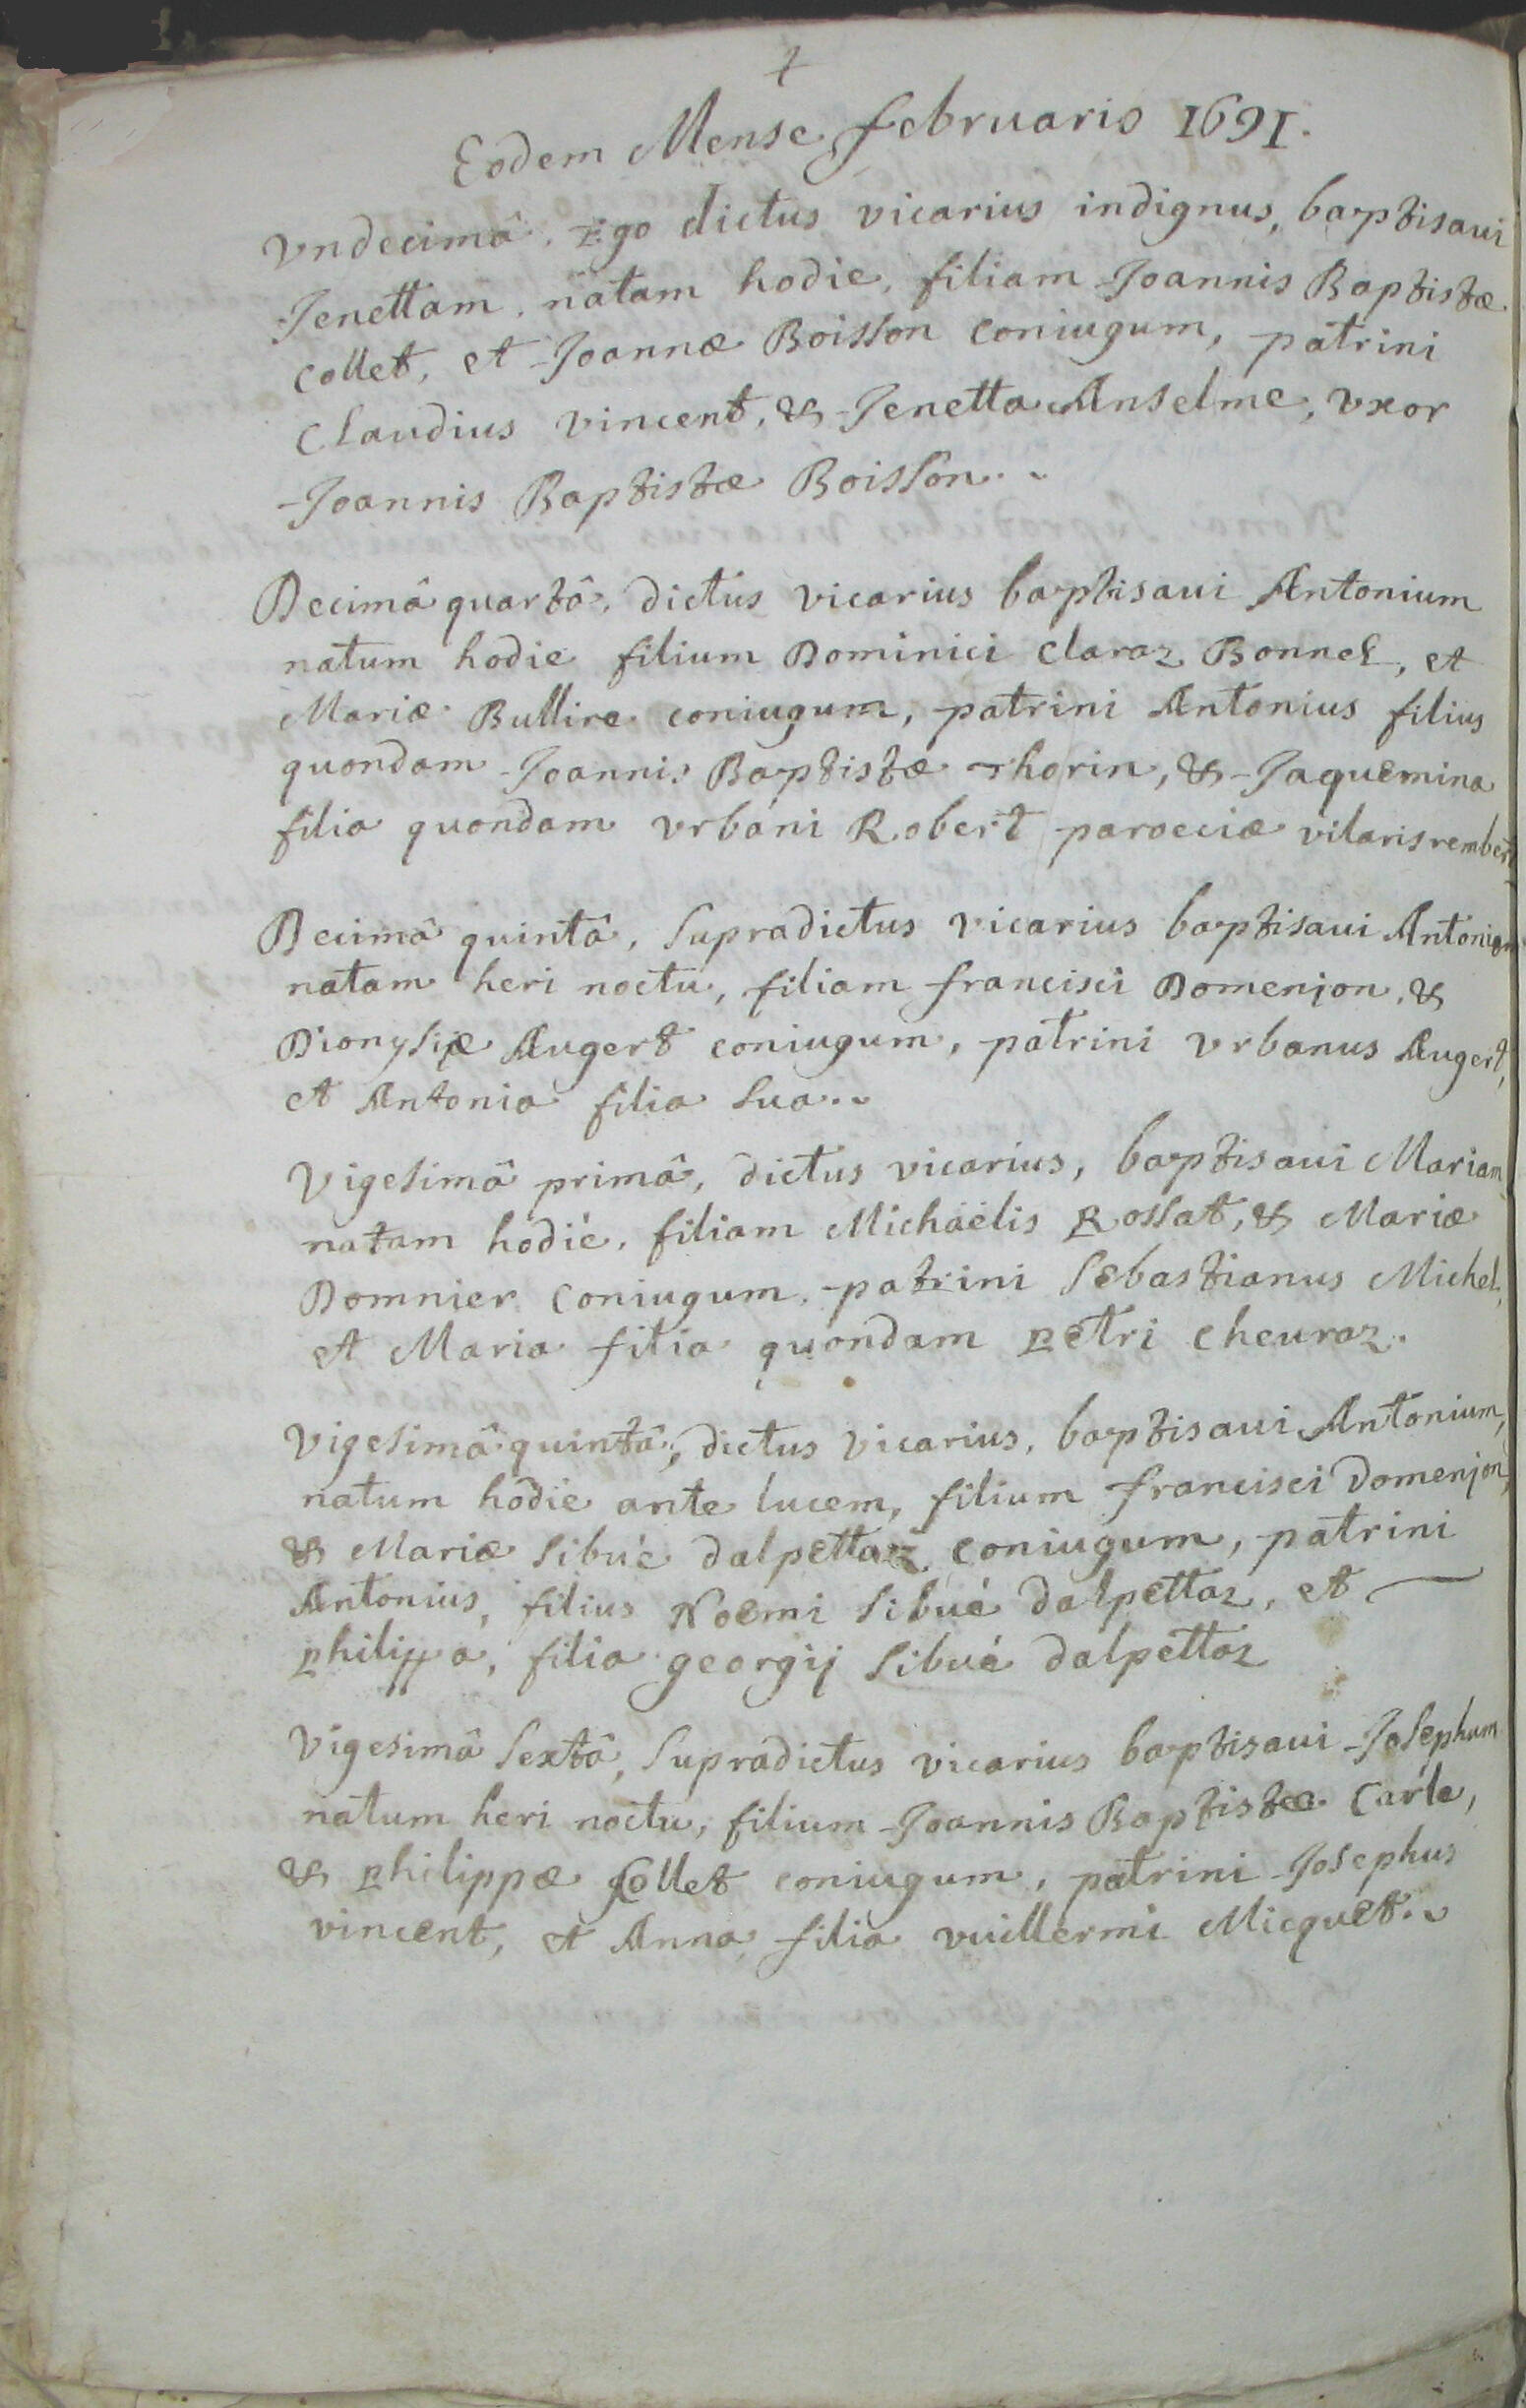 Eodem Mense februario 1691.
vndecimâ, Ego dictus vicarius indignus, baptisaui
Jenettam, natam hodie, filiam Joannis Baptistæ
Collet, et Joannæ Boisson coniugum, patrini
Claudius vincent, & Jenetta Anselme, vxor
Joannis Baptistæ Boisson..
Decimâ quartâ, dictus vicarius baptisaui Antonium
natum hodie filium Dominici Claraz Bonnel, et
Mariæ Bullire coniugum, patrini Antonius filius
quondam Joannis Baptistæ Thorin, & Jaquemina
filia quondam vrbani Robert paroeciæ vilarisrembert
Decimâ quintâ, supradictus vicarius baptisaui Antoniam
natam heri noctu, filiam francisci Domenjon, &
Dionysiæ Augert coniugum, patrini vrbanus Augert,
et Antonia filia sua..
Vigesimâ primâ, dictus vicarius, baptisaui Mariam
natam hodié, filiam Michaëlis Rossat, & Mariæ
Domnier coniugum, patrini Sebastianus Michel,
et Maria filia quondam Petri cheuraz.
Vigesimâ quintâ, dictus vicarius, baptisaui Antonium,
natum hodie ante lucem, filium francisci Domenjon,
& Mariæ Sibué dalpettaz coniugum, patrini
Antonius, filius Noemi Sibué dalpettaz, et
philippa, filia georgij Sibué dalpettaz
Vigesimâ sextâ, supradictus vicarius baptisaui Josephum
natum heri noctu, filium Joannis Baptistæ Carle,
& philippæ Collet coniugum, patrini Josephus
vincent, et Anna filia vuillermi Micquet..